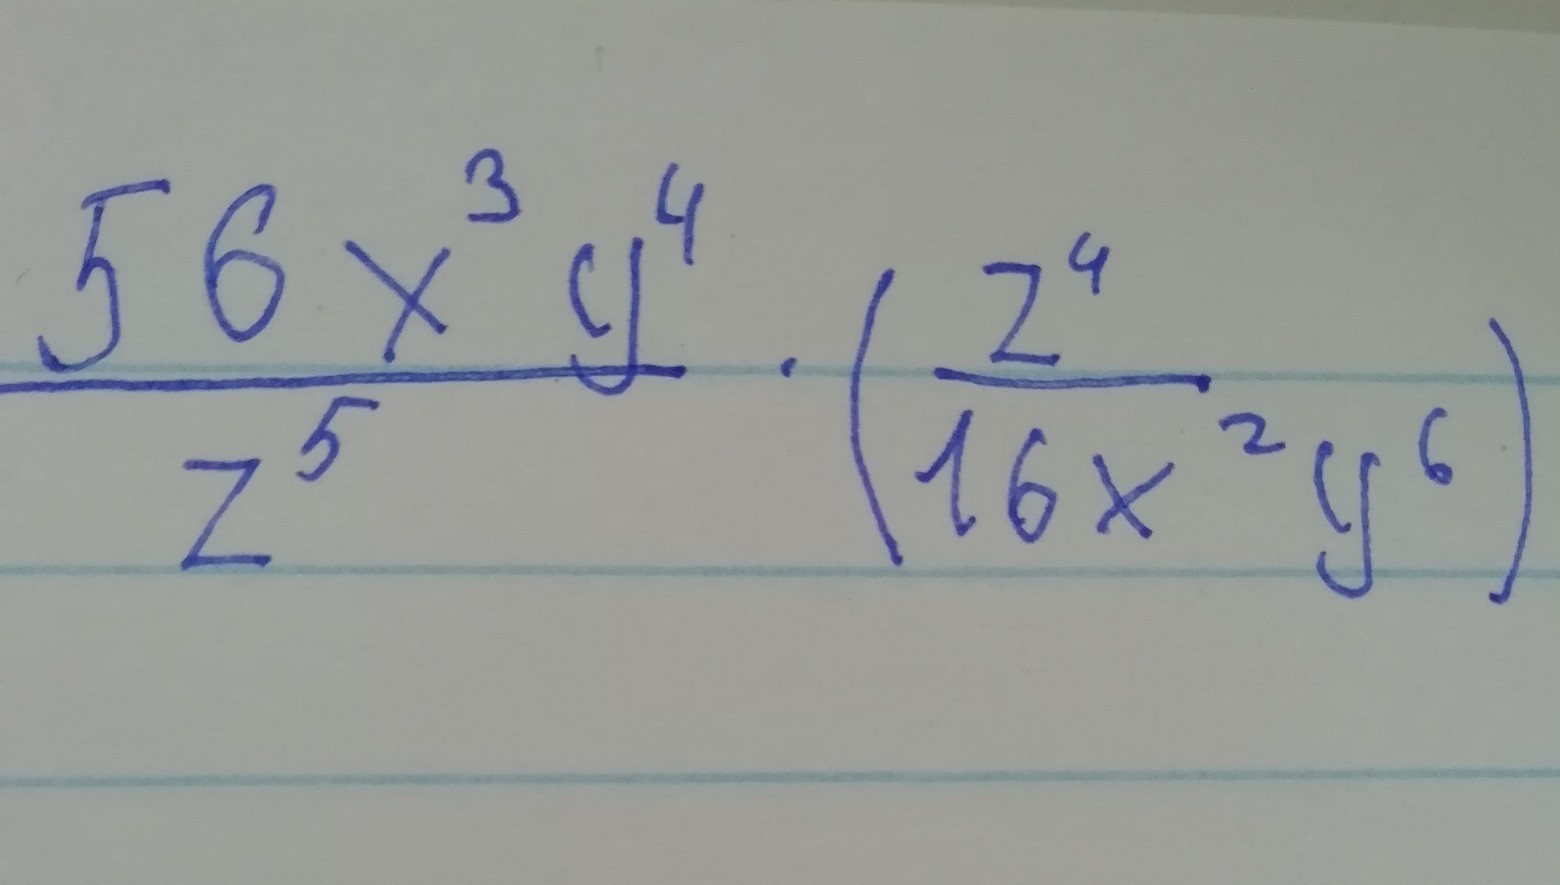 \frac{56x^3y^4}{z^5} \cdot \left(\frac{z^4}{16x^2y^6}\right)